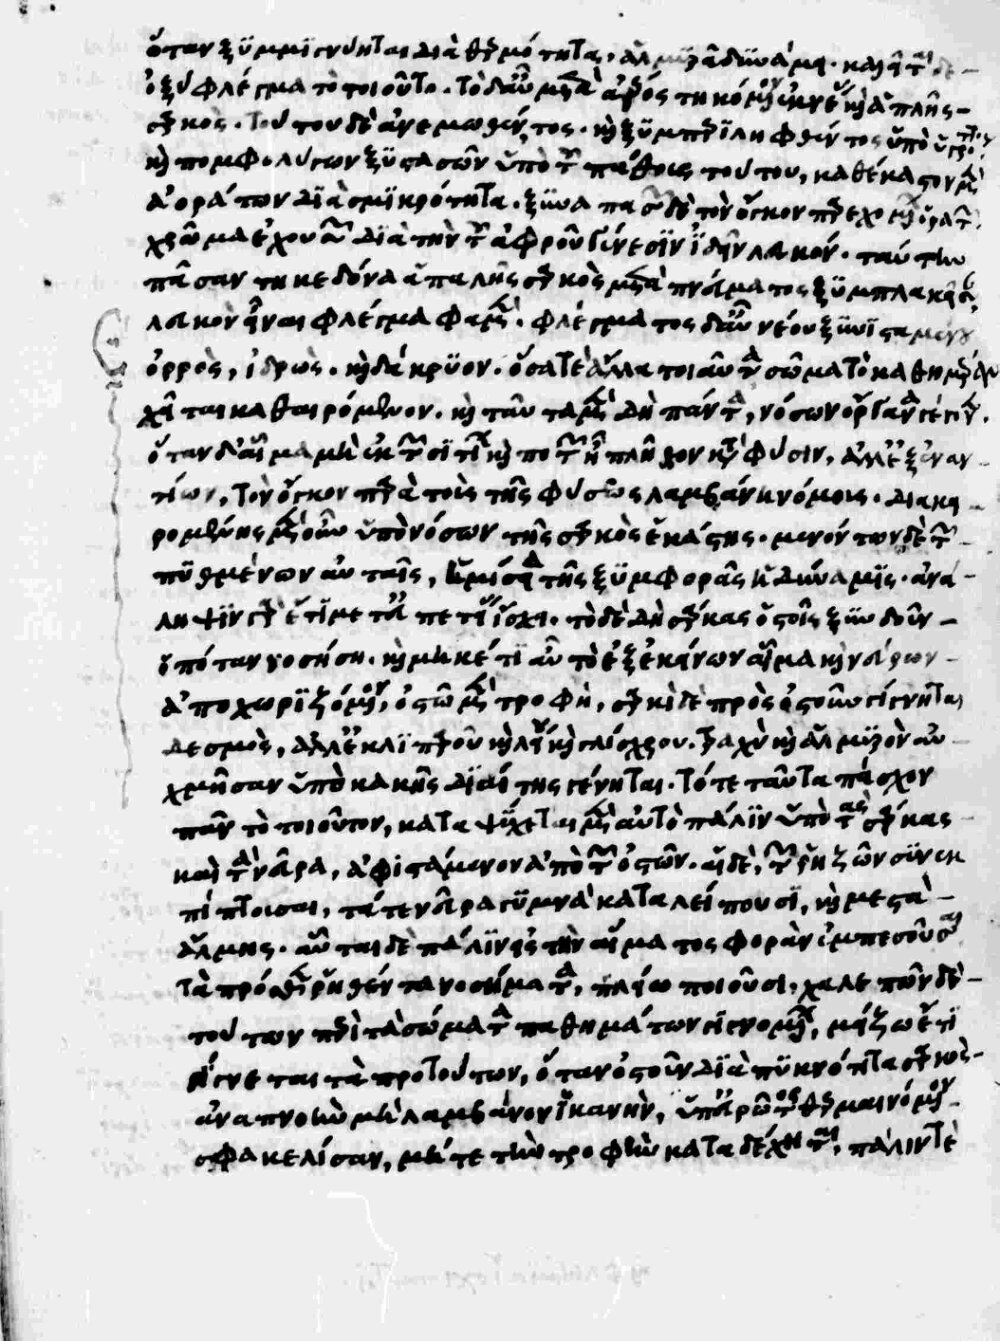 ὅταν ξυμμιγνύηται διὰ θερμότητα, ἁλμυρᾷ δυνάμει. καλεῖται δὲ
ὀξὺ φλέγμα τὸ τοιοῦτο. τὸ δ' αὖ μετὰ ἀέρος τηκόμενον ἐκ νέας καὶ ἁπαλῆς
σαρκός. τούτου δὲ ἀνεμωθέντος. καὶ ξυμπεριληφθέντος ὑπὸ ὑγρότητος
καὶ πομφολύγων ξυστασῶν ὑπὸ τοῦ πάθους τούτου, καθ' ἕκαστον μὲν
ἀοράτων διὰ σμικρότητα. ξυναπασῶν δὲ τὸν ὄγκον παρεχομένων ὁρατὸν
χρῶμα ἐχουσῶν διὰ τὴν τοῦ ἀφροῦ γένεσιν ἰδεῖν λευκόν. ταύτην
πᾶσαν τηκεδόνα ἁπαλῆς σαρκὸς μετὰ πνεύματος ξυμπλακεῖσαν
λευκὸν εἶναι φλέγμα φαμέν. φλέγματος δ' αὖ νέου ξυνισταμένου
ὀρρὸς, ἱδρὼς. καὶ δάκρυον. ὅσα τὲ ἄλλα τοιαῦτα σώματα τὸ καθημέραν
χεῖται καθαιρόμενον. καὶ ταῦτα μὲν δὴ πάντα, νόσων ὄργανα γέγονεν.
ὅταν δ' αἷμα μὴ ἐκ τῶν σιτίων καὶ ποτῶν πληθύον κατὰ φύσιν, ἀλλ' ἐξ ἐναν
τίων, τὸν ὄγκον παρὰ τοὺς τῆς φύσεως λαμβάνῃ νόμους. διακρι
νομένης μὲν οὖν ὑπὸ νόσων τῆς σαρκὸς ἑκάστης. μενόντων δὲ τῶν
πυθμένων αὐταῖς, ἡμίσεια τῆς ξυμφορᾶς ἡ δύναμις. ἀνά
ληψιν γὰρ ἔτι μετ' εὐπετείας ἴσχει. τὸ δὲ δὴ σάρκας ὀστοῖς ξυνδοῦν
ὁπόταν νοσήσῃ. καὶ μηκέτι αὐτὸ ἐξ ἐκείνων αἷμα καὶ νεύρων
ἀποχωριζόμενον, ὀστῷ μὲν τροφὴ, σαρκὶ δὲ πρὸς ὀστοῦν γίγνηται
δεσμὸς, ἀλλ' ἐκ λιπαροῦ καὶ λείου καὶ γλίσχρου. τραχὺ καὶ ἁλμυρὸν αὐ
χμῆσαν ὑπὸ κακῆς διαίτης γένηται. τότε ταῦτα πάσχον
πᾶν τὸ τοιοῦτον, καταψήχεται μὲν αὐτὸ πάλιν ὑπὸ τὰς σάρκας
καὶ τὰ νεῦρα, ἀφιστάμενον ἀπὸ τῶν ὀστῶν. αἱ δὲ, τῶν ῥιζῶν συνεκ
πίπτουσαι, τά τε νεῦρα γυμνὰ καταλείπουσι, καὶ μεστὰ
ἅλμης. αὗται δὲ πάλιν εἰς τὴν αἵματος φορὰν ἐμπεσοῦσαι
τὰ πρόσθεν ῥηθέντα νοσήματα, πλείω ποιοῦσι. χαλεπῶν δὲ
τούτων περὶ τὰ σώματα παθημάτων γιγνομένων, μείζω ἔτι
γίγνεται τὰ πρὸ τούτων, ὅταν ὀστοῦν διὰ πυκνότητα σαρκὸς
ἀναπνοὴν μὴ λαμβάνον ἱκανὴν, ὑπ' εὐρῶτος θερμαινόμενον
σφακελίσαν, μήτε τὴν τροφὴν καταδέχηται, πάλιν τὲ